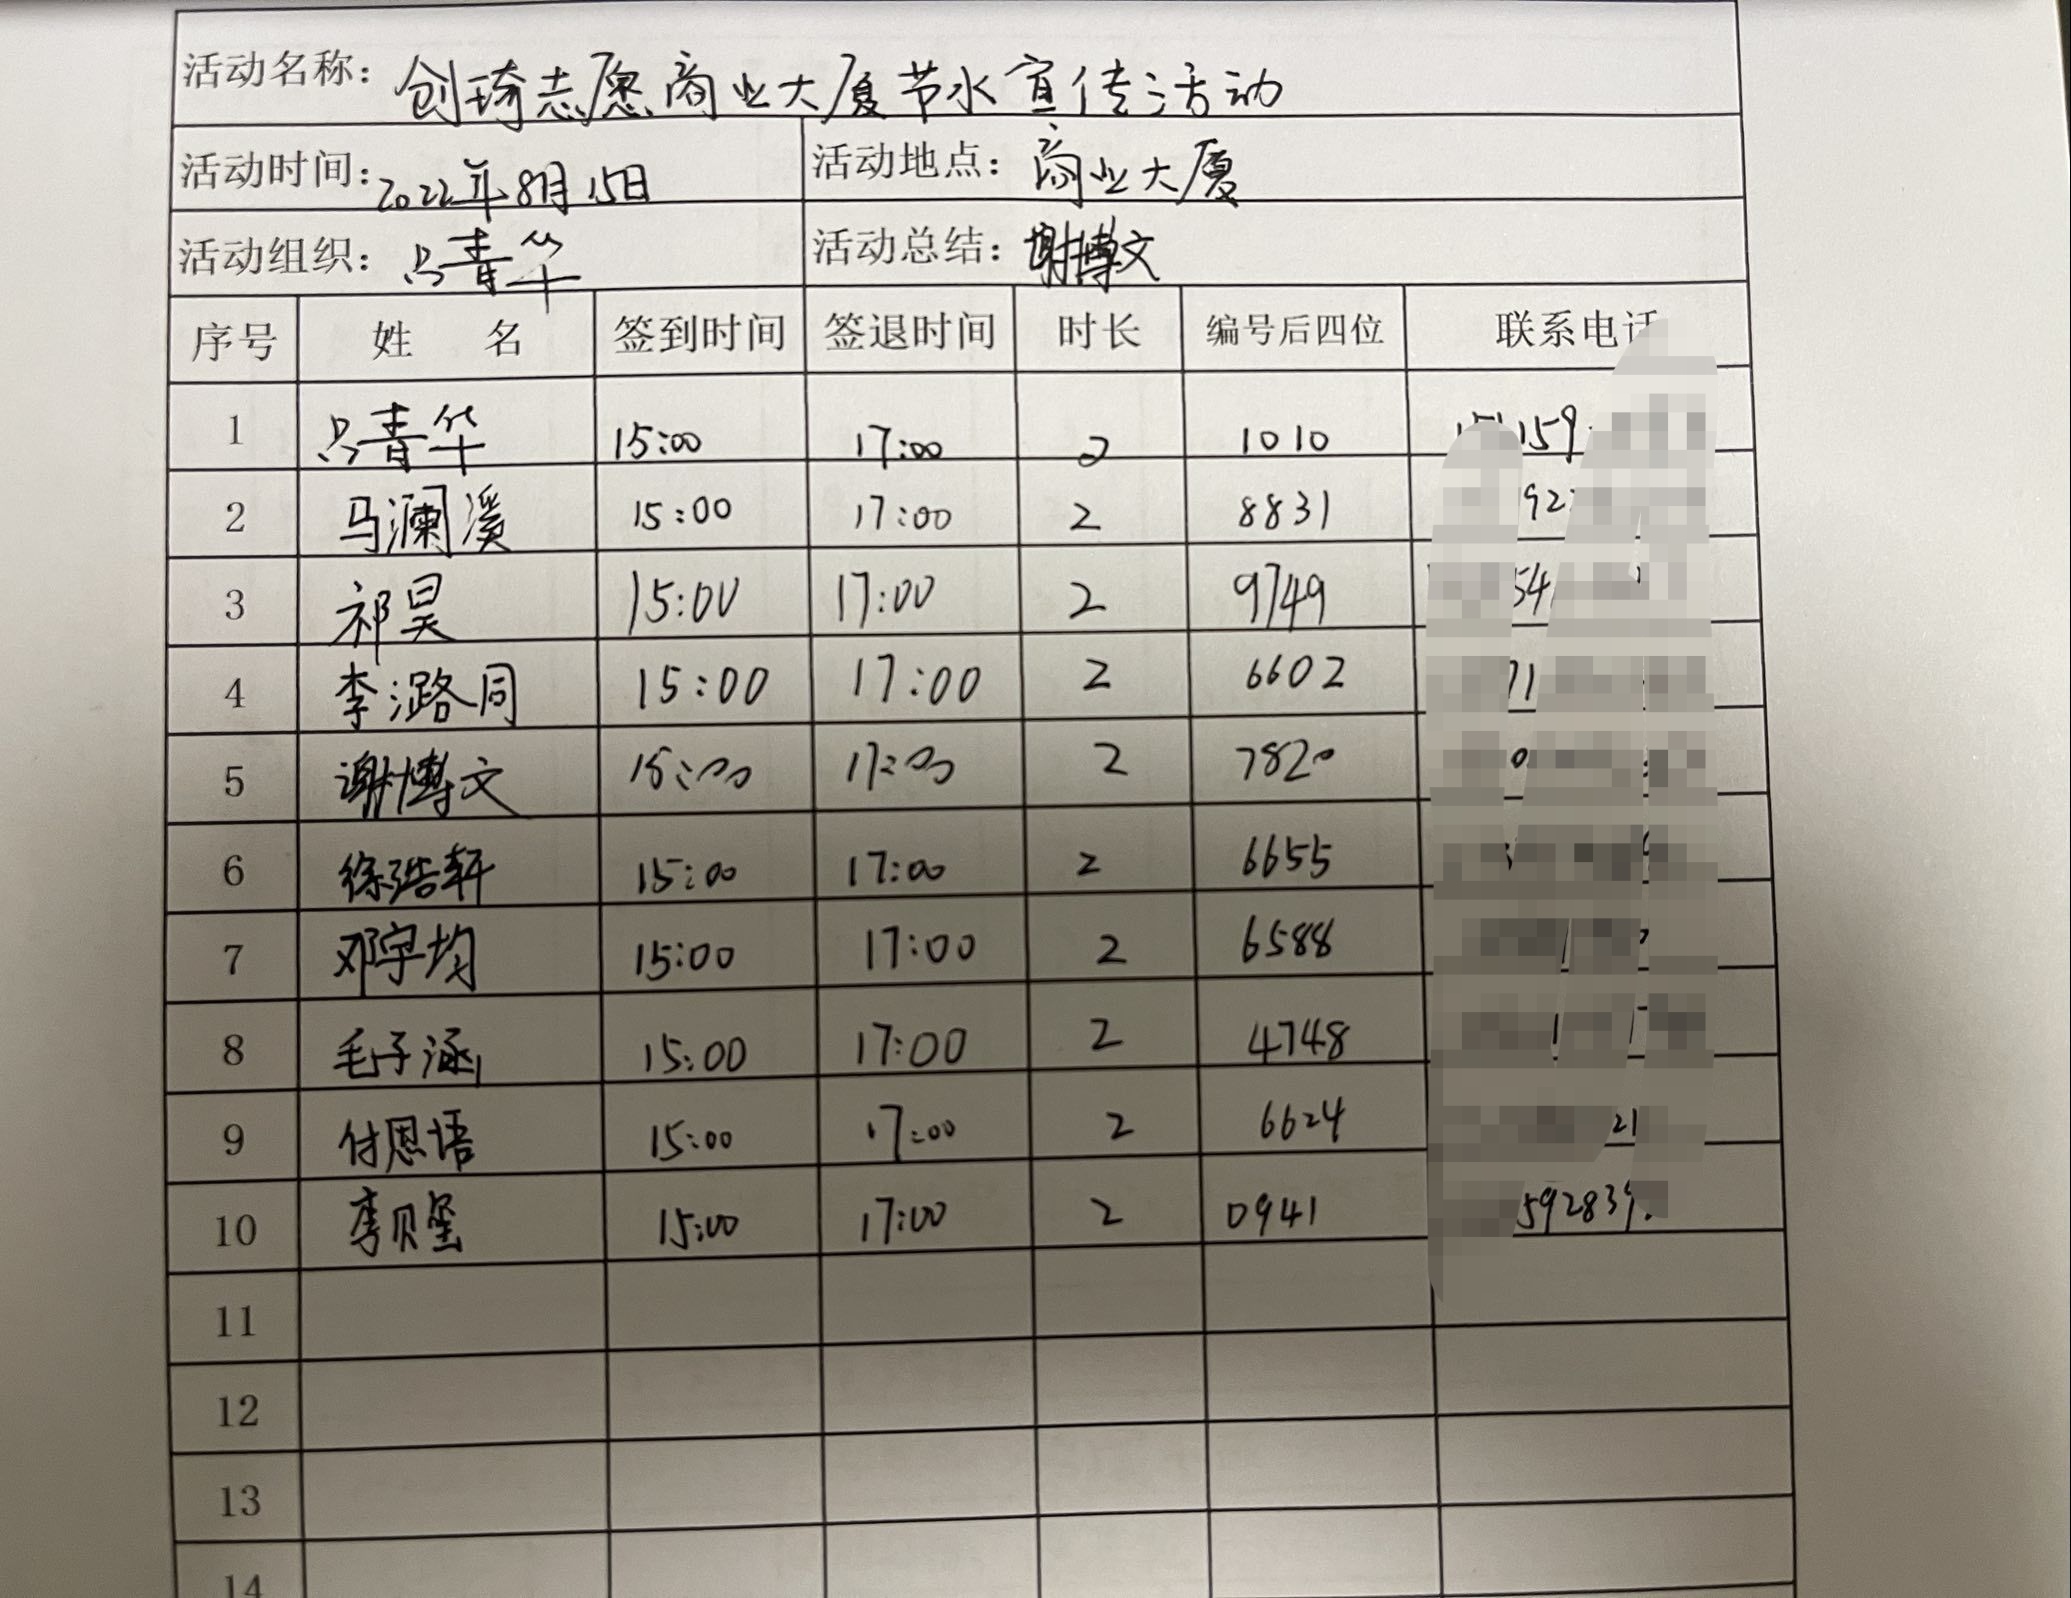 活动名称：创琦志愿商业大厦节水宣传活动
活动时间：2022年8月15日 活动地点：商业大厦
活动组织：吕青华 活动总结：谢博文
序号 姓 名 签到时间 签退时间 时长 编号后四位 联系电话
1 吕青华 15:00 17:00 2 1010
2 马澜溪 15:00 17:00 2 8831
3 祁昊 15:00 17:00 2 9749
4 李潞同 15:00 17:00 2 6602
5 谢博文 15:00 17:00 2 7820
6 徐浩轩 15:00 17:00 2 6655
7 邓宇均 15:00 17:00 2 6588
8 毛子涵 15:00 17:00 2 4748
9 付恩语 15:00 17:00 2 6624
10 李贝 15:00 17:00 2 0941
11
12
13
14